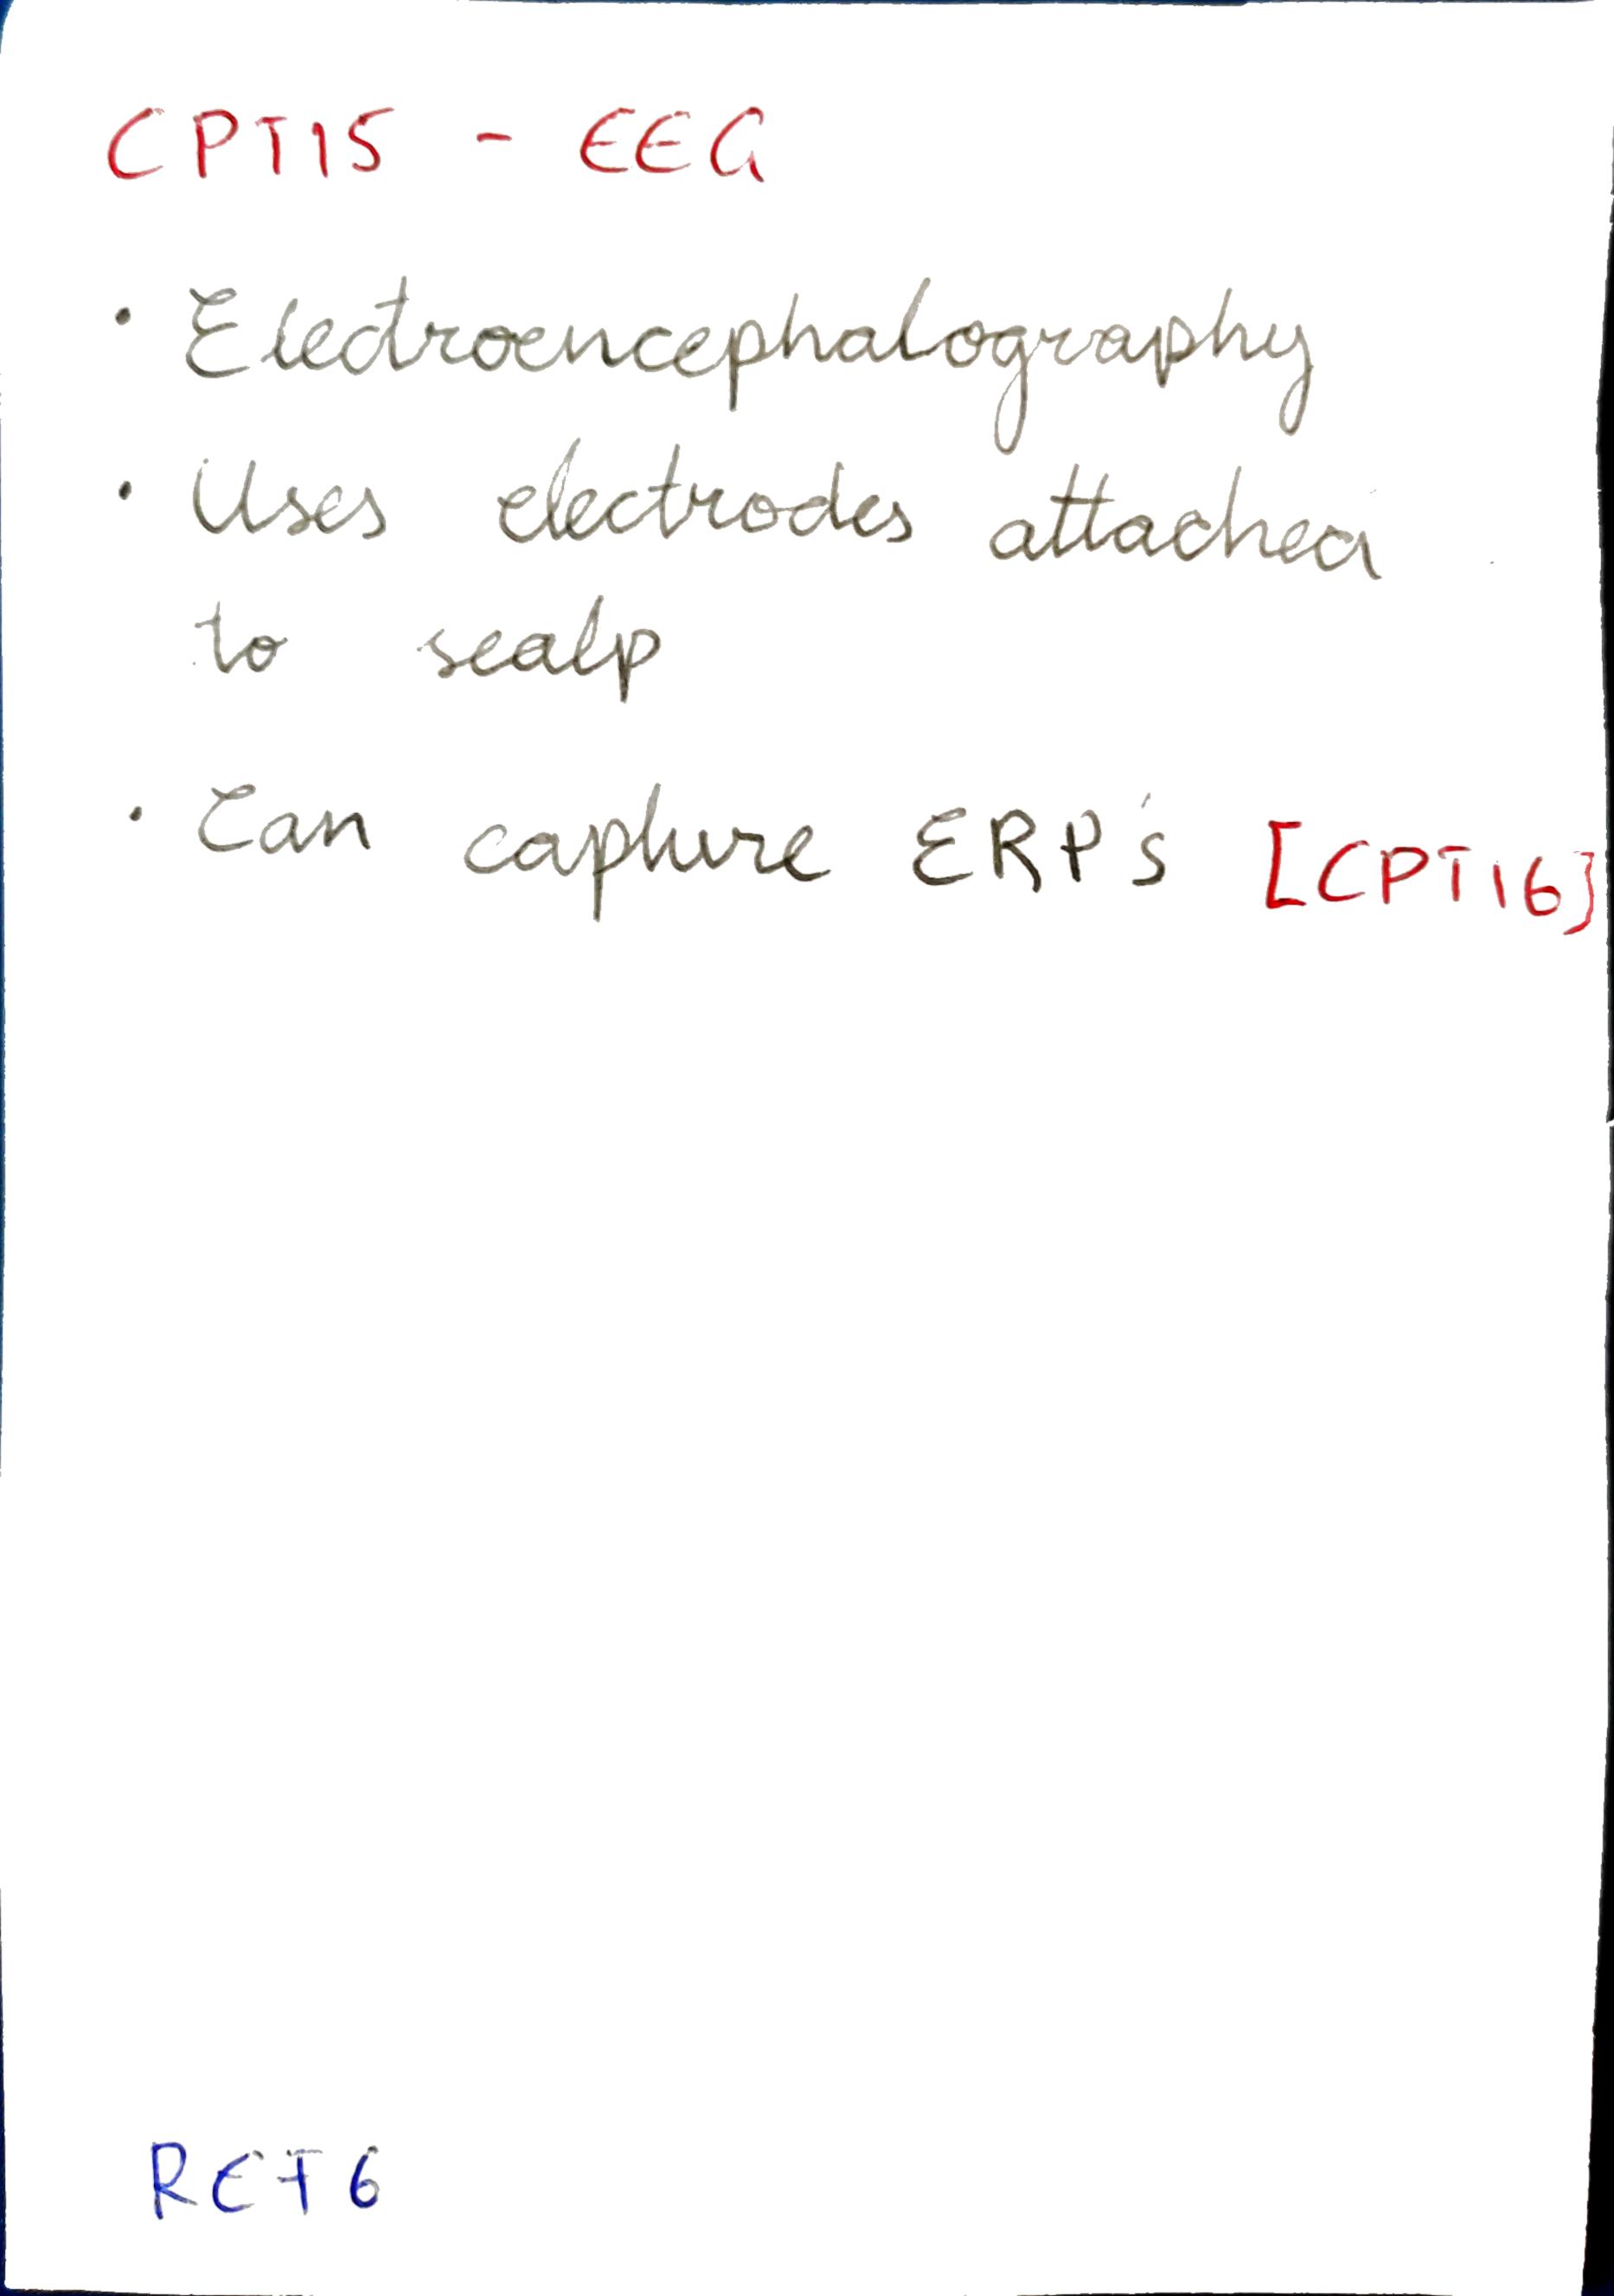 CPT15 - EEG
• Electroencephalography
• Uses electrodes attached
to scalp
• Can capture ERP's [CPT16]
REF6